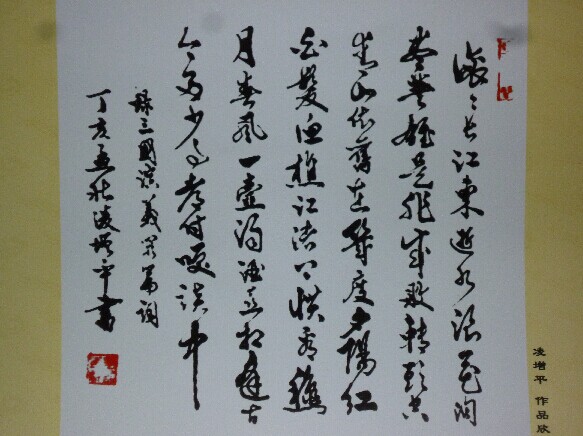 滾〻長江東逝水浪花淘
盡英雄是非成敗轉頭空
青山依舊在幾度夕陽紅
白髮漁樵江渚上慣看秋
月春風一壺濁酒喜相逢古
今多少事都付笑談中
錄三國演義開篇詞
丁亥孟秋凌增平書
凌增平 作品欣